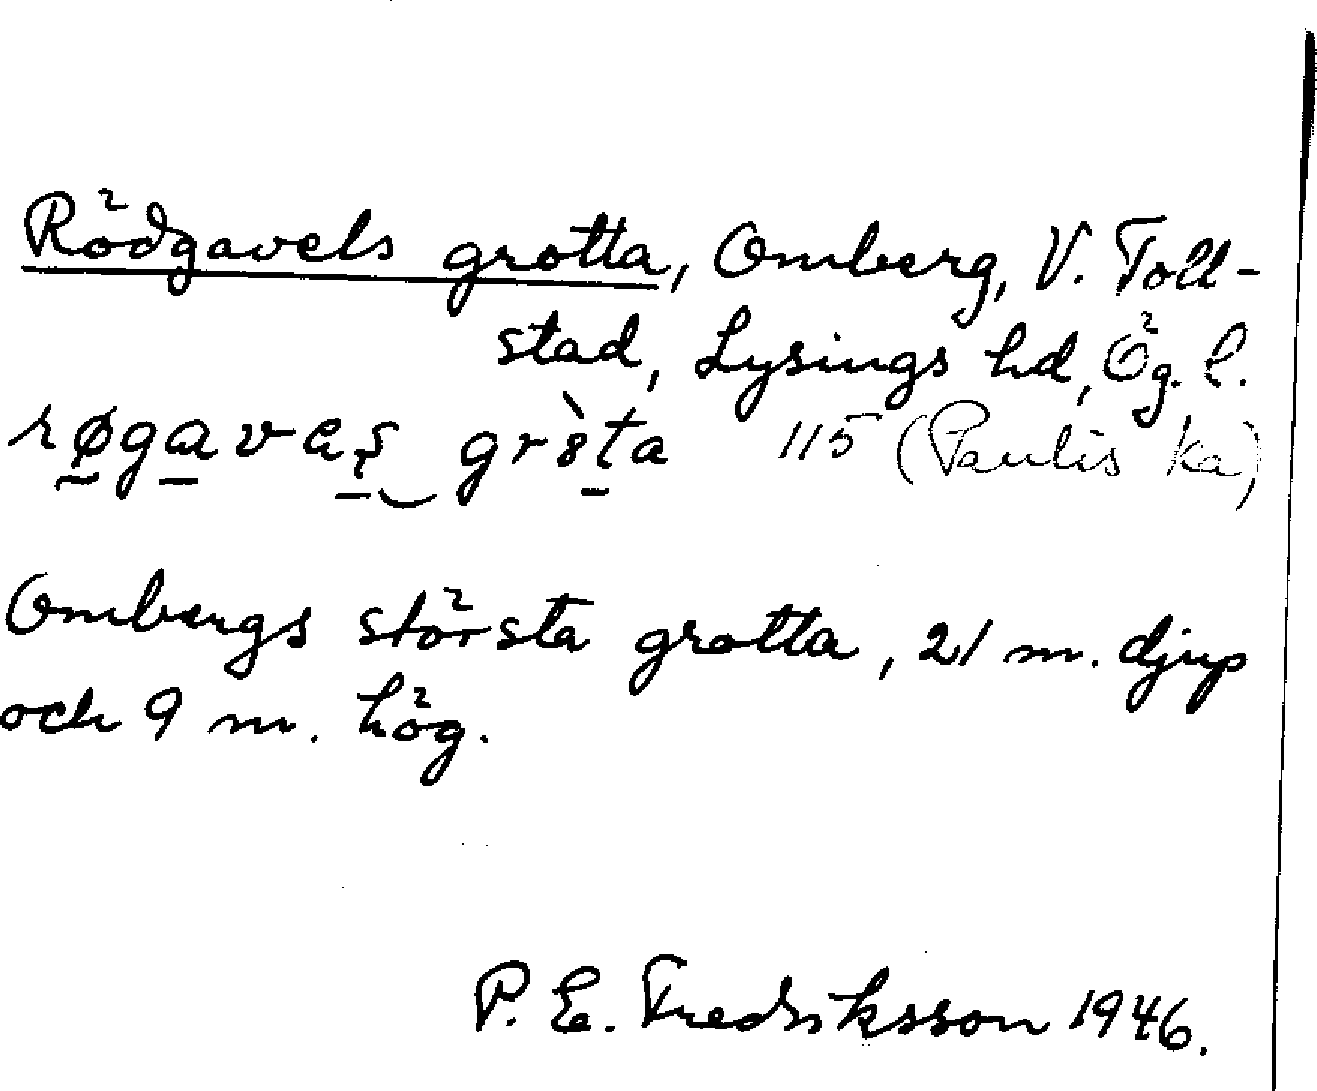 Rödgavels grotta, Omberg, V. Toll-
stad, Lysings hd, Ög. l.
røgavaș grȣ̀ta 115 (Paulis ka)
Ombergs största grotta, 21 m. djup
och 9 m. hög.
P. E. Fredriksson 1946.